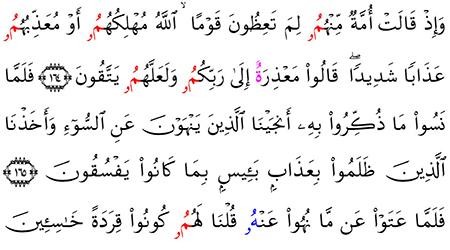 وَإِذْ قَالَتْ أُمَّةٌ مِّنْهُمُۥ لِمَ تَعِظُونَ قَوْمًا ۙ اللَّهُ مُهْلِكُهُمُۥ أَوْ مُعَذِّبُهُمُۥ
عَذَابًا شَدِيدًا ۖ قَالُوا۟ مَعْذِرَةٌ إِلَىٰ رَبِّكُمُۥ وَلَعَلَّهُمُۥ يَتَّقُونَ ﴿١٦٤﴾ فَلَمَّا
نَسُوا۟ مَا ذُكِّرُوا۟ بِهِۦٓ أَنجَيْنَا الَّذِينَ يَنْهَوْنَ عَنِ السُّوٓءِ وَأَخَذْنَا
الَّذِينَ ظَلَمُوا۟ بِعَذَابٍۭ بَـِٔيسٍۭ بِمَا كَانُوا۟ يَفْسُقُونَ ﴿١٦٥﴾
فَلَمَّا عَتَوْا۟ عَن مَّا نُهُوا۟ عَنْهُۥ قُلْنَا لَهُمُۥ كُونُوا۟ قِرَدَةً خَـٰسِـِٔينَ